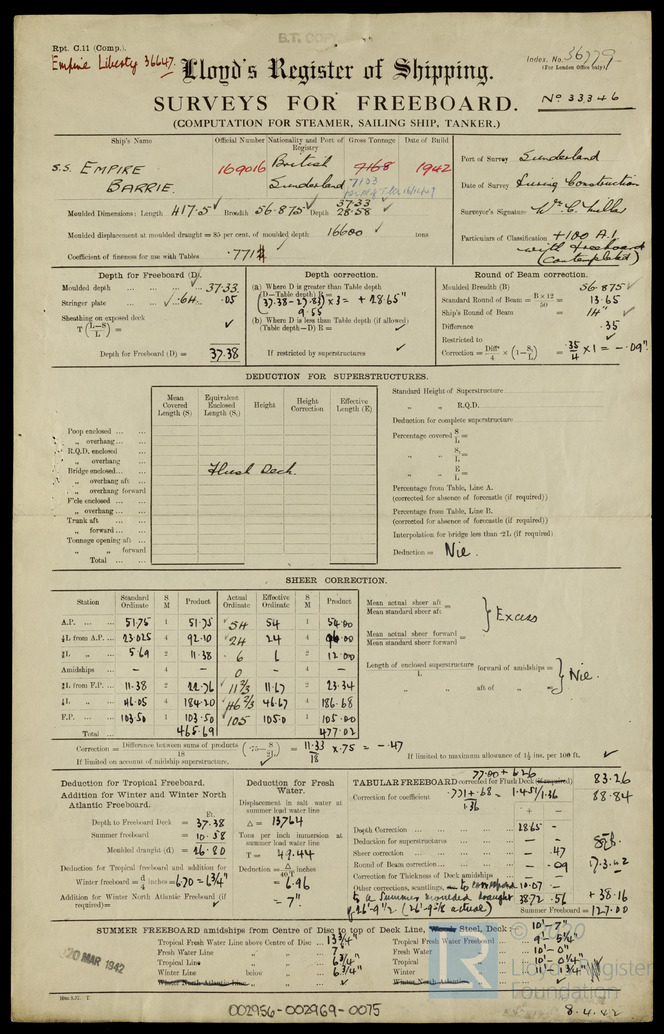 B.T. COPY
Rpt. C.11 (Comp.).
Empire Liberty 36647.
Index. No. 36779
(For London Office only)
Lloyd's Register of Shipping.
SURVEYS FOR FREEBOARD.
No 33346
(COMPUTATION FOR STEAMER, SAILING SHIP, TANKER.)
Ship's Name
Official Number
Nationality and Port of Registry
Gross Tonnage
Date of Build
S.S. EMPIRE BARRIE.
169016
British Sunderland
7168
7133
1942
Port of Survey Sunderland
Date of Survey During Construction
Surveyor's Signature Wm. C. Miller
Particulars of Classification +100 A.1. with freeboard (Contemplated)
Moulded Dimensions: Length 417.5 Breadth 56.875 Depth 37.33 28.58
Moulded displacement at moulded draught = 85 per cent. of moulded depth 16600 tons
Coefficient of fineness for use with Tables .771
Depth for Freeboard (D).
Moulded depth ... ... ... 37.33
Stringer plate ... ... .64 .05
Sheathing on exposed deck
T (L−S/L) =
Depth for Freeboard (D) = 37.38
Depth correction.
(a) Where D is greater than Table depth
(D−Table depth) R =
(37.38 − 27.83) × 3 = + 28.65"
9.55
(b) Where D is less than Table depth (if allowed)
(Table depth−D) R =
If restricted by superstructures
Round of Beam correction.
Moulded Breadth (B) 56.875
Standard Round of Beam = B×12/50 = 13.65
Ship's Round of Beam = 14"
Difference .35
Restricted to
Correction = Diff/4 × (1−S₁/L) = .35/4 × 1 = −.09"
DEDUCTION FOR SUPERSTRUCTURES.
Mean Covered Length (S)
Equivalent Enclosed Length (S₁)
Height
Height Correction
Effective Length (E)
Poop enclosed ... ...
" overhang ... ...
R.Q.D. enclosed ...
" overhang
Bridge enclosed... ...
" overhang aft ...
" overhang forward
F'cle enclosed ... ...
" overhang ... ...
Trunk aft ... ...
" forward ... ...
Tonnage opening aft ...
" " forward
Total ... ...
Flush Deck.
Standard Height of Superstructure
" " R.Q.D.
Deduction for complete superstructure
Percentage covered S/L =
" " S₁/L =
" " E/L =
Percentage from Table, Line A.
(corrected for absence of forecastle (if required))
Percentage from Table, Line B.
(corrected for absence of forecastle (if required))
Interpolation for bridge less than ·2L (if required)
Deduction = Nil.
SHEER CORRECTION.
Station | Standard Ordinate | S M | Product | Actual Ordinate | Effective Ordinate | S M | Product
A.P. ... ... 51.75 1 51.75 54 54 1 54.00
⅙L from A.P. ... 23.025 4 92.10 24 24 4 96.00
⅓L " ... 5.69 2 11.38 6 6 2 12.00
Amidships ... − 4 − 0 − 4 −
⅓L from F.P. ... 11.38 2 22.76 11 2/3 11.67 2 23.34
⅙L " ... 46.05 4 184.20 46 2/3 46.67 4 186.68
F.P. ... ... 103.50 1 103.50 105 105.0 1 105.00
Total ... 465.69 477.02
Mean actual sheer aft
Mean standard sheer aft =
Mean actual sheer forward
Mean standard sheer forward =
Excess
Length of enclosed superstructure forward of amidships =
L
" " aft of " =
Nil.
Correction = Difference between sums of products/18 (·75−S/2L) = 11.33/18 × .75 = −.47
If limited on account of midship superstructure.
If limited to maximum allowance of 1½ ins. per 100 ft.
Deduction for Tropical Freeboard.
Addition for Winter and Winter North Atlantic Freeboard.
Ft.
Depth to Freeboard Deck = 37.38
Summer freeboard = 10.58
Moulded draught (d) = 26.80
Deduction for Tropical freeboard and addition for
Winter freeboard = d/4 inches = 6.70 = 6¾"
Addition for Winter North Atlantic Freeboard (if required) =
Deduction for Fresh Water.
Displacement in salt water at summer load water line
Δ = 13764
Tons per inch immersion at summer load water line
T = 49.44
Deduction = Δ/40T inches
= 6.96
= 7".
TABULAR FREEBOARD corrected for Flush Deck (if required)
77.00 + 6.26
83.26
Correction for coefficient .771 + .68/1.36 = 1.451/1.36
88.84
+ −
Depth Correction ... ... 28.65 −
Deduction for superstructures ... − −
Sheer correction ... ... − .47
Round of Beam correction... ... − .09
Correction for Thickness of Deck amidships ... − −
Other corrections, scantlings, to correspond 10.07 −
to a summer moulded draught
of 26'-9½ (26'-9⅝ actual)
38.72 .56
17.3.42
+ 38.16
Summer Freeboard = 127.00
SUMMER FREEBOARD amidships from Centre of Disc to top of Deck Line, Wood, Steel, Deck:− 10'-7"
Tropical Fresh Water Line above Centre of Disc ... 13¾"
Fresh Water Line " " ... 7"
Tropical Line " " ... 6¾"
Winter Line below " ... 6¾"
Winter North Atlantic Line " "
Tropical Fresh Water Freeboard ... 9'-5¼"
Fresh Water " ... 10'-0"
Tropical " ... 10'-0¼"
Winter " ... 11'-1¾"
Winter North Atlantic "
20 MAR 1942
© 2020
Lloyd's Register
Foundation
002956-002969-0075
8.4.42